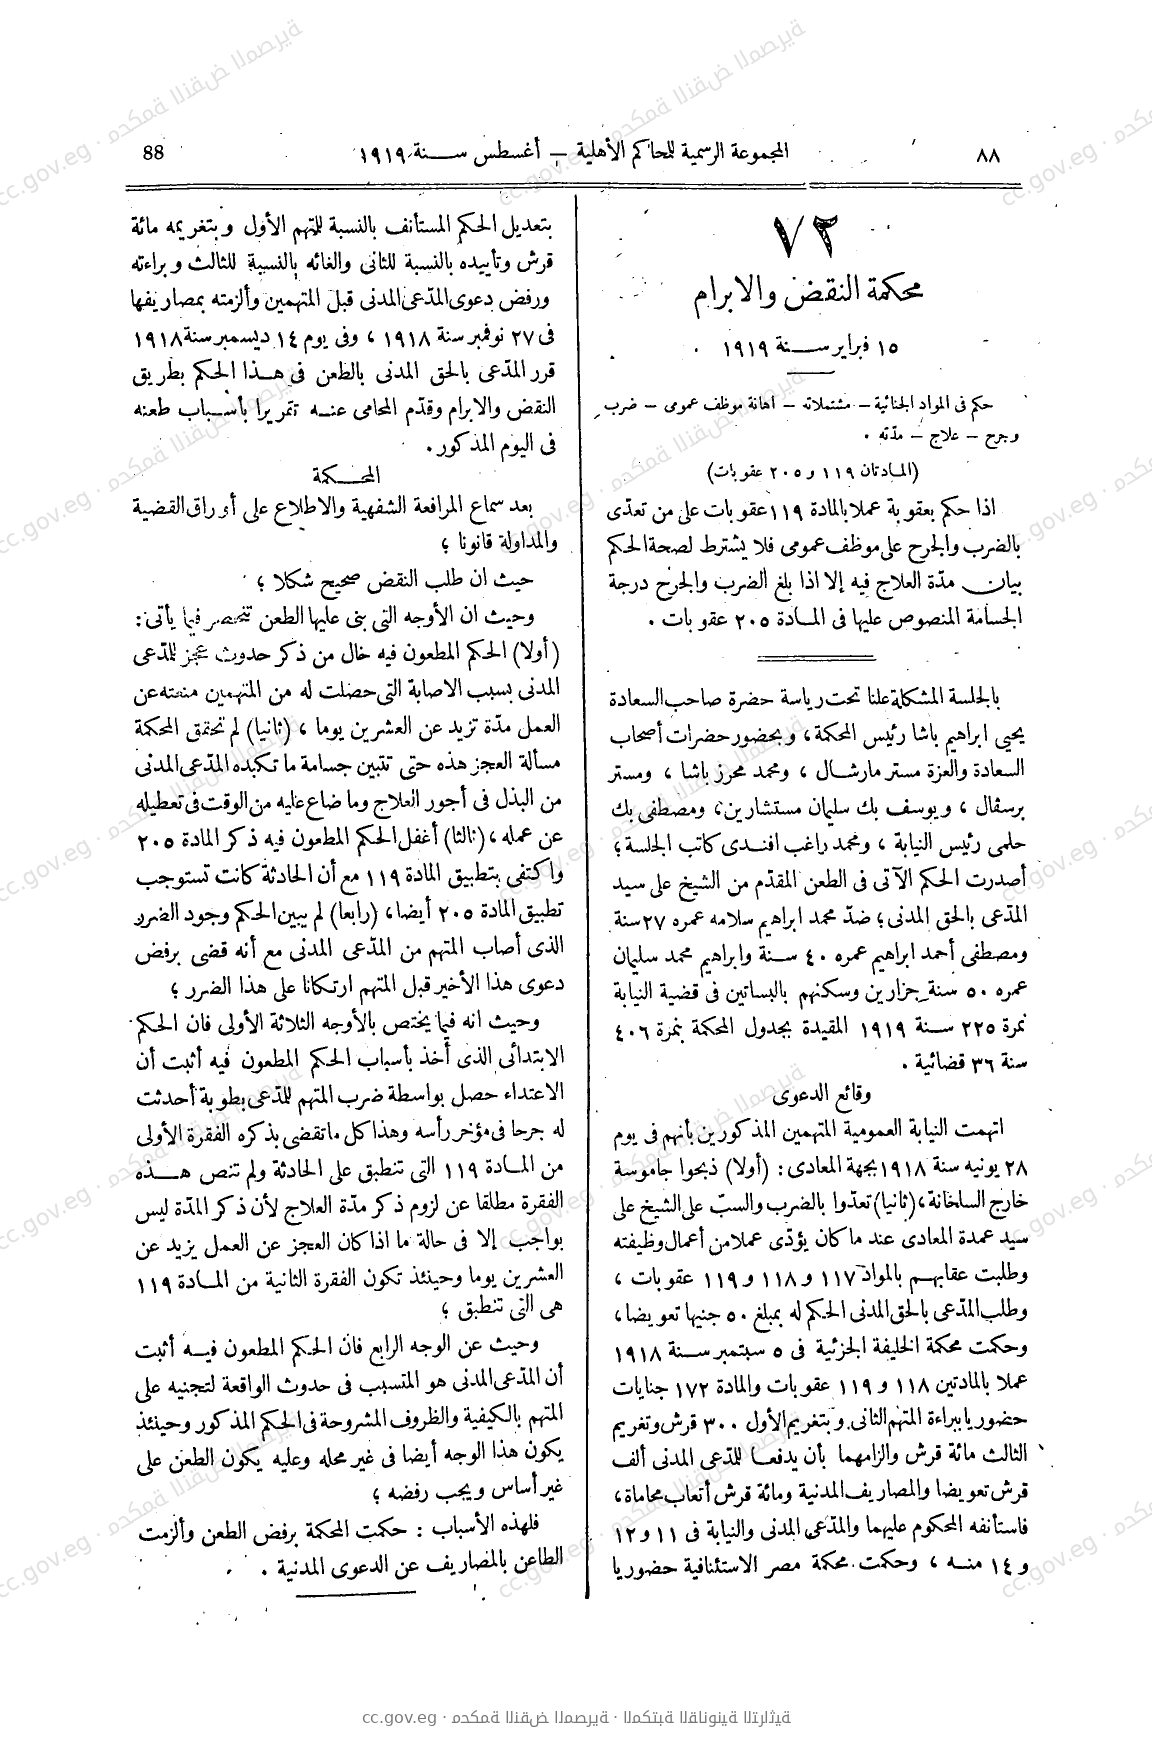 ٨٨
المجموعة الرسمية للمحاكم الأهلية – أغسطس سنة ١٩١٩
88
٧٢
محكمة النقض والابرام
١٥ فبراير سنة ١٩١٩
حكم فى المواد الجنائية – مشتملاته – اهانة موظف عمومى – ضرب
وجرح – علاج – مدّته .
(المادتان ١١٩ و ٢٠٥ عقوبات)
اذا حكم بعقوبة عملا بالمادة ١١٩ عقوبات على من تعدّى
بالضرب والجرح على موظف عمومى فلا يشترط لصحة الحكم
بيان مدّة العلاج فيه إلا اذا بلغ الضرب والجرح درجة
الجسامة المنصوص عليها فى المادة ٢٠٥ عقوبات .
بالجلسة المشكلة علنا تحت رياسة حضرة صاحب السعادة
يحيى ابراهيم باشا رئيس المحكمة ، وبحضور حضرات أصحاب
السعادة والعزة مستر مارشال ، ومحمد محرز باشا ، ومستر
برسفال ، ويوسف بك سليمان مستشارين ، ومصطفى بك
حلمى رئيس النيابة ، ومحمد راغب افندى كاتب الجلسة ؛
أصدرت الحكم الآتى فى الطعن المقدّم من الشيخ على سيد
المدّعى بالحق المدنى ؛ ضدّ محمد ابراهيم سلامه عمره ٢٧ سنة
ومصطفى أحمد ابراهيم عمره ٤٠ سنة وابراهيم محمد سليمان
عمره ٥٠ سنة جزارين وسكنهم بالبساتين فى قضية النيابة
نمرة ٢٢٥ سنة ١٩١٩ المقيدة بجدول المحكمة بنمرة ٤٠٦
سنة ٣٦ قضائية .
وقائع الدعوى
اتهمت النيابة العمومية المتهمين المذكورين بأنهم فى يوم
٢٨ يونيه سنة ١٩١٨ بجهة المعادى : (أولا) ذبحوا جاموسة
خارج السلخانة ، (ثانيا) تعدّوا بالضرب والسبّ على الشيخ على
سيد عمدة المعادى عند ما كان يؤدّى عملا من أعمال وظيفته
وطلبت عقابهم بالمواد ١١٧ و ١١٨ و ١١٩ عقوبات ،
وطلب المدّعى بالحق المدنى الحكم له بمبلغ ٥٠ جنيها تعويضا ،
وحكمت محكمة الخليفة الجزئية فى ٥ سبتمبر سنة ١٩١٨
عملا بالمادتين ١١٨ و ١١٩ عقوبات والمادة ١٧٢ جنايات
حضوريا ببراءة المتهم الثانى وبتغريم الأول ٣٠٠ قرش وتغريم
الثالث مائة قرش والزامهما بأن يدفعا للمدّعى المدنى ألف
قرش تعويضا والمصاريف المدنية ومائة قرش أتعاب محاماة ،
فاستأنفه المحكوم عليهما والمدّعى المدنى والنيابة فى ١١ و ١٢
و ١٤ منه ، وحكمت محكمة مصر الاستئنافية حضوريا
بتعديل الحكم المستأنف بالنسبة للمتهم الأول وبتغريمه مائة
قرش وتأييده بالنسبة للثانى والغائه بالنسبة للثالث وبراءته
ورفض دعوى المدّعى المدنى قبل المتهمين وألزمته بمصاريفها
فى ٢٧ نوفمبر سنة ١٩١٨ ، وفى يوم ١٤ ديسمبر سنة ١٩١٨
قرر المدّعى بالحق المدنى بالطعن فى هذا الحكم بطريق
النقض والابرام وقدّم المحامى عنه تقريرا بأسباب طعنه
فى اليوم المذكور .
المحكمة
بعد سماع المرافعة الشفهية والاطلاع على أوراق القضية
والمداولة قانونا ؛
حيث ان طلب النقض صحيح شكلا ؛
وحيث ان الأوجه التى بنى عليها الطعن تنحصر فيما يأتى :
(أولا) الحكم المطعون فيه خال من ذكر حدوث عجز للمدّعى
المدنى بسبب الاصابة التى حصلت له من المتهمين منعته عن
العمل مدّة تزيد عن العشرين يوما ، (ثانيا) لم تحقق المحكمة
مسألة العجز هذه حتى تتبين جسامة ما تكبده المدّعى المدنى
من البذل فى أجور العلاج وما ضاع عليه من الوقت فى تعطيله
عن عمله ، (ثالثا) أغفل الحكم المطعون فيه ذكر المادة ٢٠٥
واكتفى بتطبيق المادة ١١٩ مع أن الحادثة كانت تستوجب
تطبيق المادة ٢٠٥ أيضا ، (رابعا) لم يبين الحكم وجود الضرر
الذى أصاب المتهم من المدّعى المدنى مع أنه قضى برفض
دعوى هذا الأخير قبل المتهم ارتكانا على هذا الضرر ؛
وحيث انه فيما يختص بالأوجه الثلاثة الأولى فان الحكم
الابتدائى الذى أخذ بأسباب الحكم المطعون فيه أثبت أن
الاعتداء حصل بواسطة ضرب المتهم للمدّعى بطوبة أحدثت
له جرحا فى مؤخر رأسه وهذا كل ما تقضى بذكره الفقرة الأولى
من المادة ١١٩ التى تنطبق على الحادثة ولم تنص هذه
الفقرة مطلقا عن لزوم ذكر مدّة العلاج لأن ذكر المدّة ليس
بواجب إلا فى حالة ما اذا كان العجز عن العمل يزيد عن
العشرين يوما وحينئذ تكون الفقرة الثانية من المادة ١١٩
هى التى تنطبق ؛
وحيث عن الوجه الرابع فان الحكم المطعون فيه أثبت
أن المدّعى المدنى هو المتسبب فى حدوث الواقعة لتجنيه على
المتهم بالكيفية والظروف المشروحة فى الحكم المذكور وحينئذ
يكون هذا الوجه أيضا فى غير محله وعليه يكون الطعن على
غير أساس ويجب رفضه ؛
فلهذه الأسباب : حكمت المحكمة برفض الطعن وألزمت
الطاعن بالمصاريف عن الدعوى المدنية .
cc.gov.eg · محكمة النقض المصرية · المكتبة القانونية التراثية